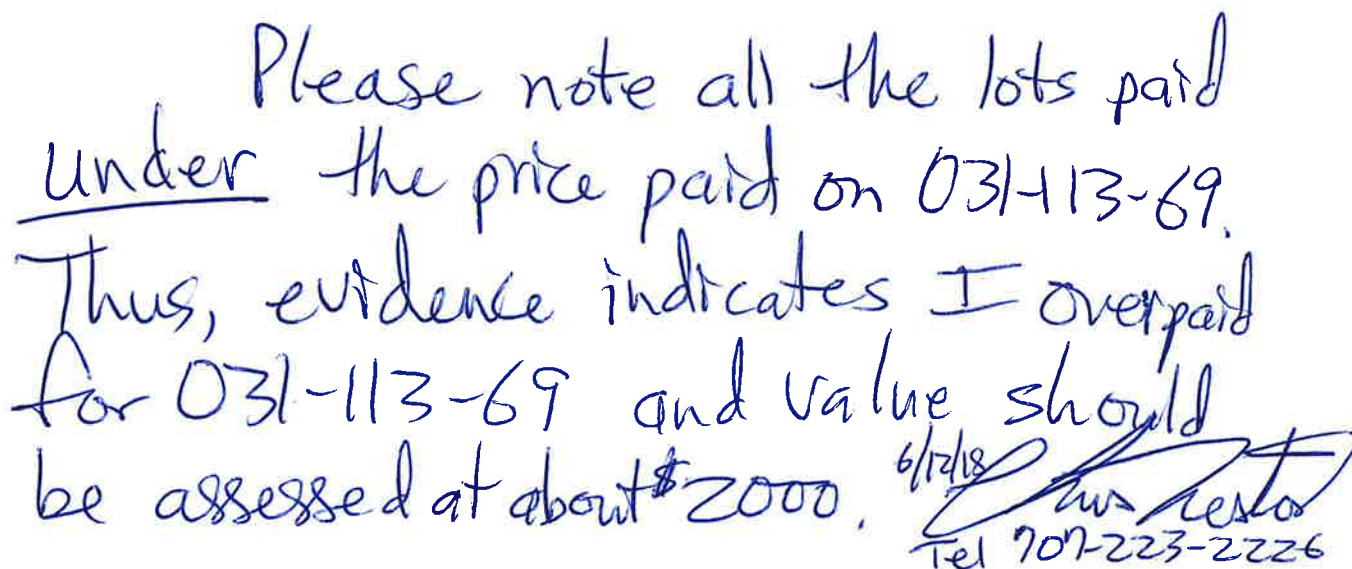 Please note all the lots paid
under the price paid on 031-113-69.
Thus, evidence indicates I overpaid
for 031-113-69 and value should
be assessed at about $2000.
6/12/18
Tel 707-223-2226